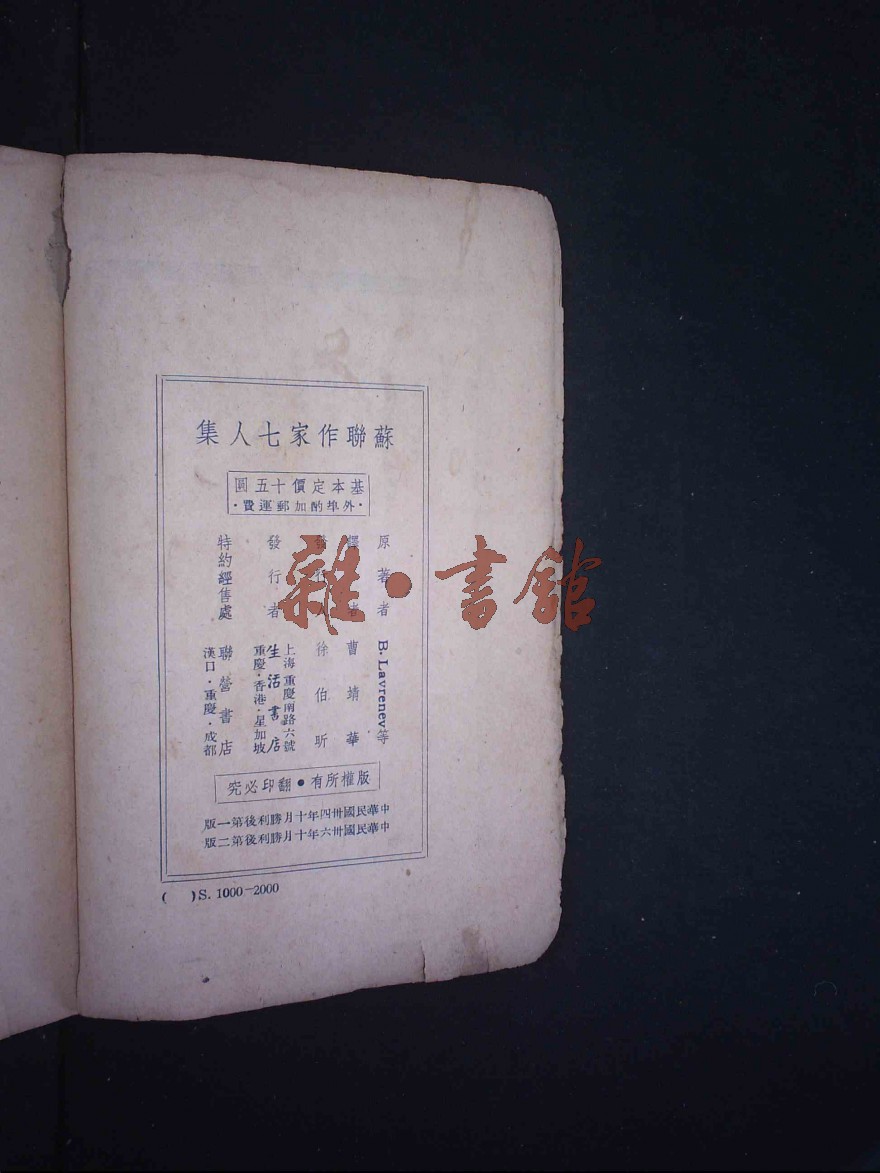 蘇聯作家七人集
基本定價十五圓
·外埠酌加郵運費·
原著者 B. Lavrenev等
譯者 曹靖華
發行人 徐伯昕
發行者 生活書店
上海重慶南路六號
重慶·香港·星加坡
特約經售處 聯營書店
漢口·重慶·成都
版權所有●翻印必究
中華民國卅四年十月勝利後第一版
中華民國卅六年十月勝利後第二版
( )S. 1000—2000
雜·書館